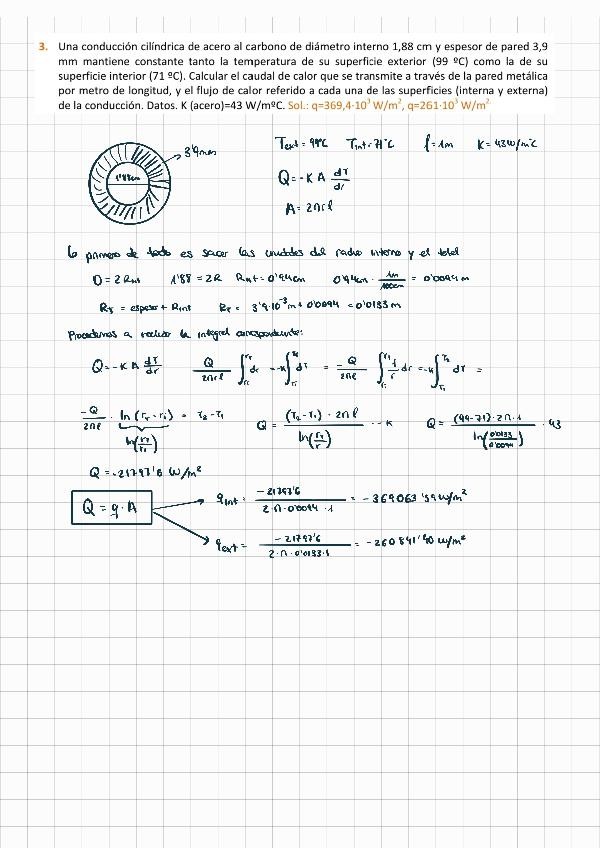 3. Una conducción cilíndrica de acero al carbono de diámetro interno 1,88 cm y espesor de pared 3,9
mm mantiene constante tanto la temperatura de su superficie exterior (99 ºC) como la de su
superficie interior (71 ºC). Calcular el caudal de calor que se transmite a través de la pared metálica
por metro de longitud, y el flujo de calor referido a cada una de las superficies (interna y externa)
de la conducción. Datos. K (acero)=43 W/mºC. Sol.: q=369,4·10³ W/m², q=261·10³ W/m²
3'9mm
1'88cm
Text = 99ºC Tint = 71ºC l = 1m K = 43 W/mºC
Q = -K A dT/dr
A = 2πrl
Lo primero de todo es sacar las unidades del radio interno y el total
D = 2Rint 1'88 = 2R Rint = 0'94cm 0'94cm · 1m/100cm = 0'0094m
RT = espesor + Rint RT = 3'9·10⁻³m + 0'0094 = 0'0133m
Procedemos a realizar la integral correspondiente:
Q = -K A dT/dr
-Q/2πl · ln(rT - ri) = T2 - T1 Q = (T2-T1) · 2πl / ln(rT/ri) · -K Q = (99-71)·2π·1 / ln(0'0133/0'0094) · 43
ln(rT/ri)
Q = -21797'6 W/m²
Q = q · A
qint = -21797'6 / 2·π·0'0094·1 = -369063'59 W/m²
qext = -21797'6 / 2·π·0'0133·1 = -260841'40 W/m²